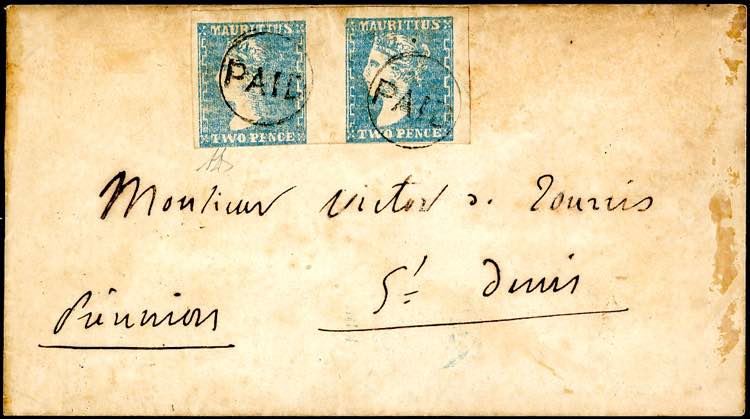 MAURITIUS
TWO PENCE
PAID
MAURITIUS
TWO PENCE
PAID
Monsieur Victor de Tourris
St Denis
Réunion